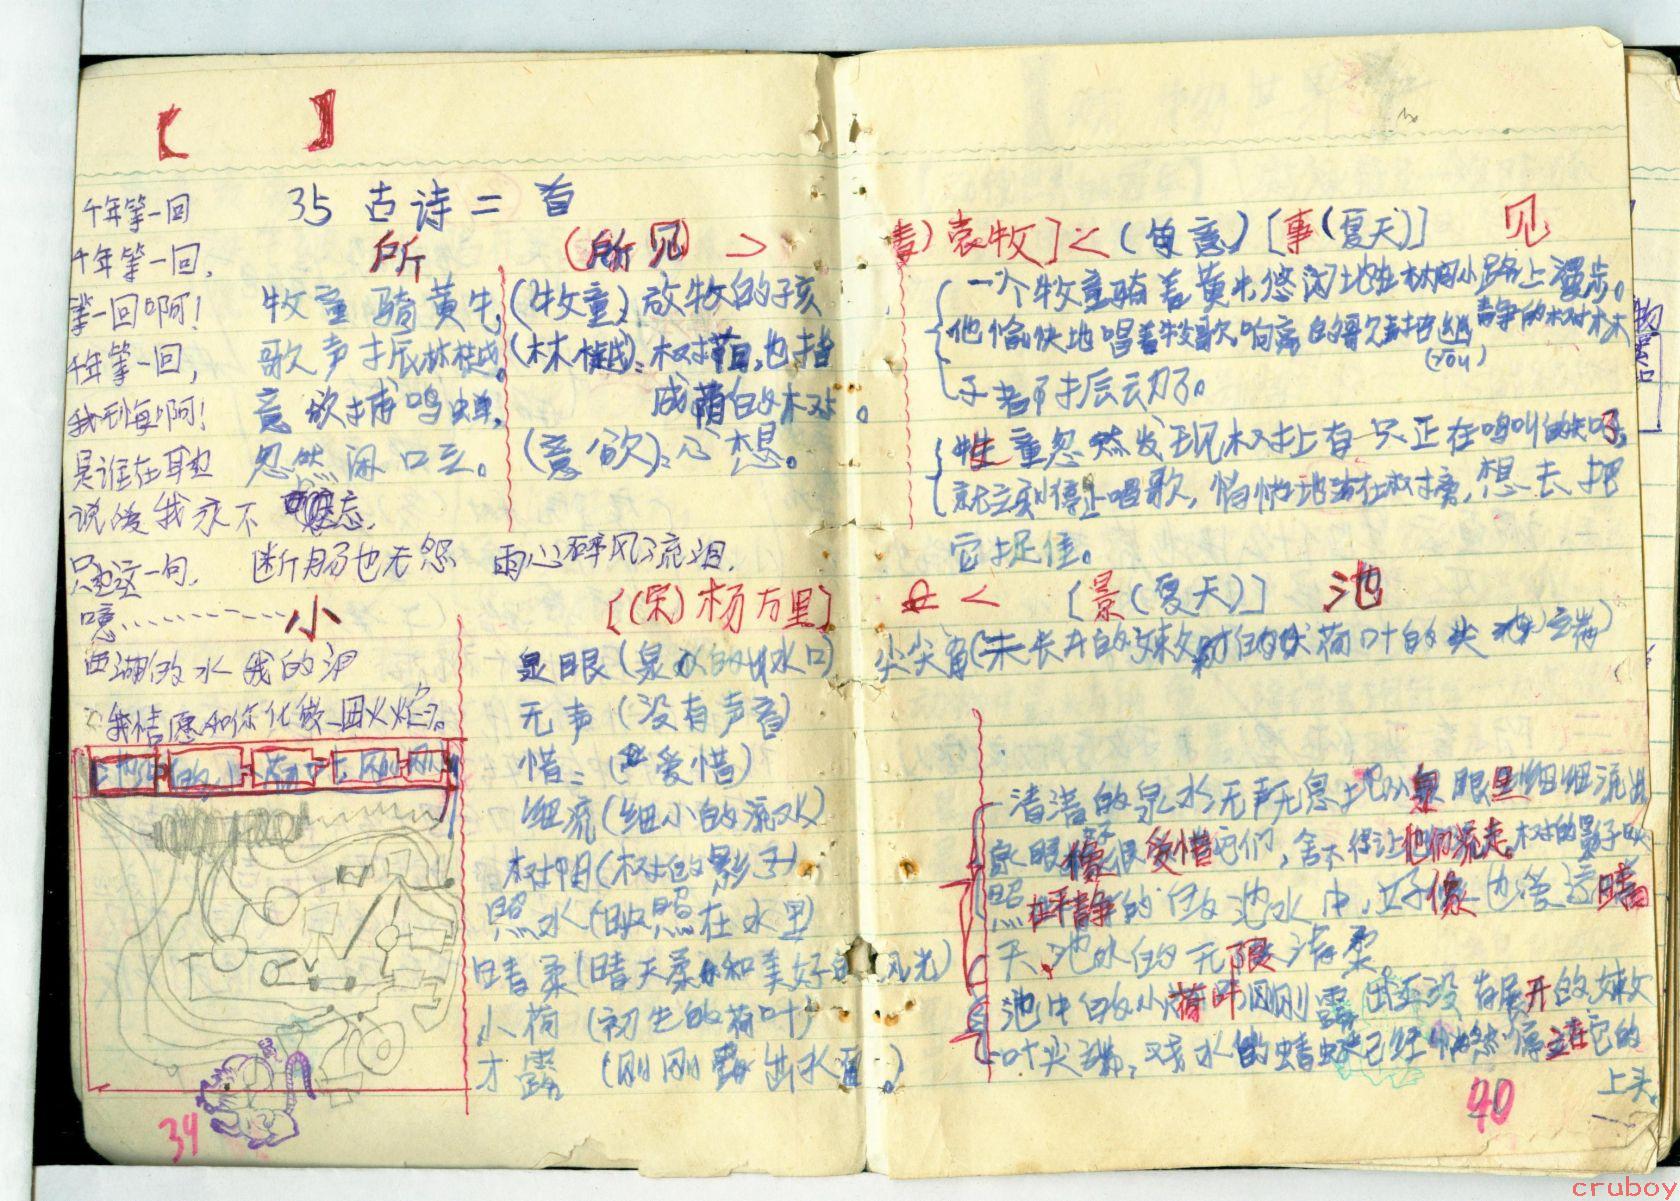 【 】
35 古诗二首
千年等一回
千年等一回,
等一回啊!
千年等一回,
我无悔啊!
是谁在耳边
说爱我永不 忘,
只为这一句.
断肠也无怨 雨心碎风流泪.
噫…………
西湖的水我的泪
我情愿和你化做一团火焰。
所
(所见) >
牧童骑黄牛,
歌声振林樾。
意欲捕鸣蝉,
忽然闭口立。
(牧童) 放牧的孩
(林樾): 树荫,也指
成荫的树。
(意欲): 心想。
小
[(宋)杨万里]
泉眼(泉水的出水口)
无声(没有声音)
惜: (爱惜)
细流(细小的流水)
树阴(树的影子)
照水(映照在水里)
晴柔(晴天柔和美好的风光)
小荷(初生的荷叶)
才露(刚刚露出水面。)
34
袁牧] < (自意) [事(夏天)] 见
一个牧童骑着黄牛悠闲地在林间小路上漫步。
他愉快地唱着牧歌,响亮的歌声把幽静的树林
(you)
子都振动了。
牧童忽然发现树上有一只正在鸣叫的蝉呀,
就立刻停止唱歌,悄悄地站在树旁,想去把
它捉住。
< [景(夏天)] 池
尖尖角(未长开的嫩 荷叶的尖端)
清清的泉水无声无息地从泉眼里细细流出
泉眼像很爱惜它们,舍不得让他们流走.树的影子映
照在平静的 池水中,好像也爱这晴
天,池水的无限清柔。
池中的小荷叶刚刚露出还没有展开的嫩
叶尖端,戏水的蜻蜓已经悄然停立在它的
上头。
40
cruboy